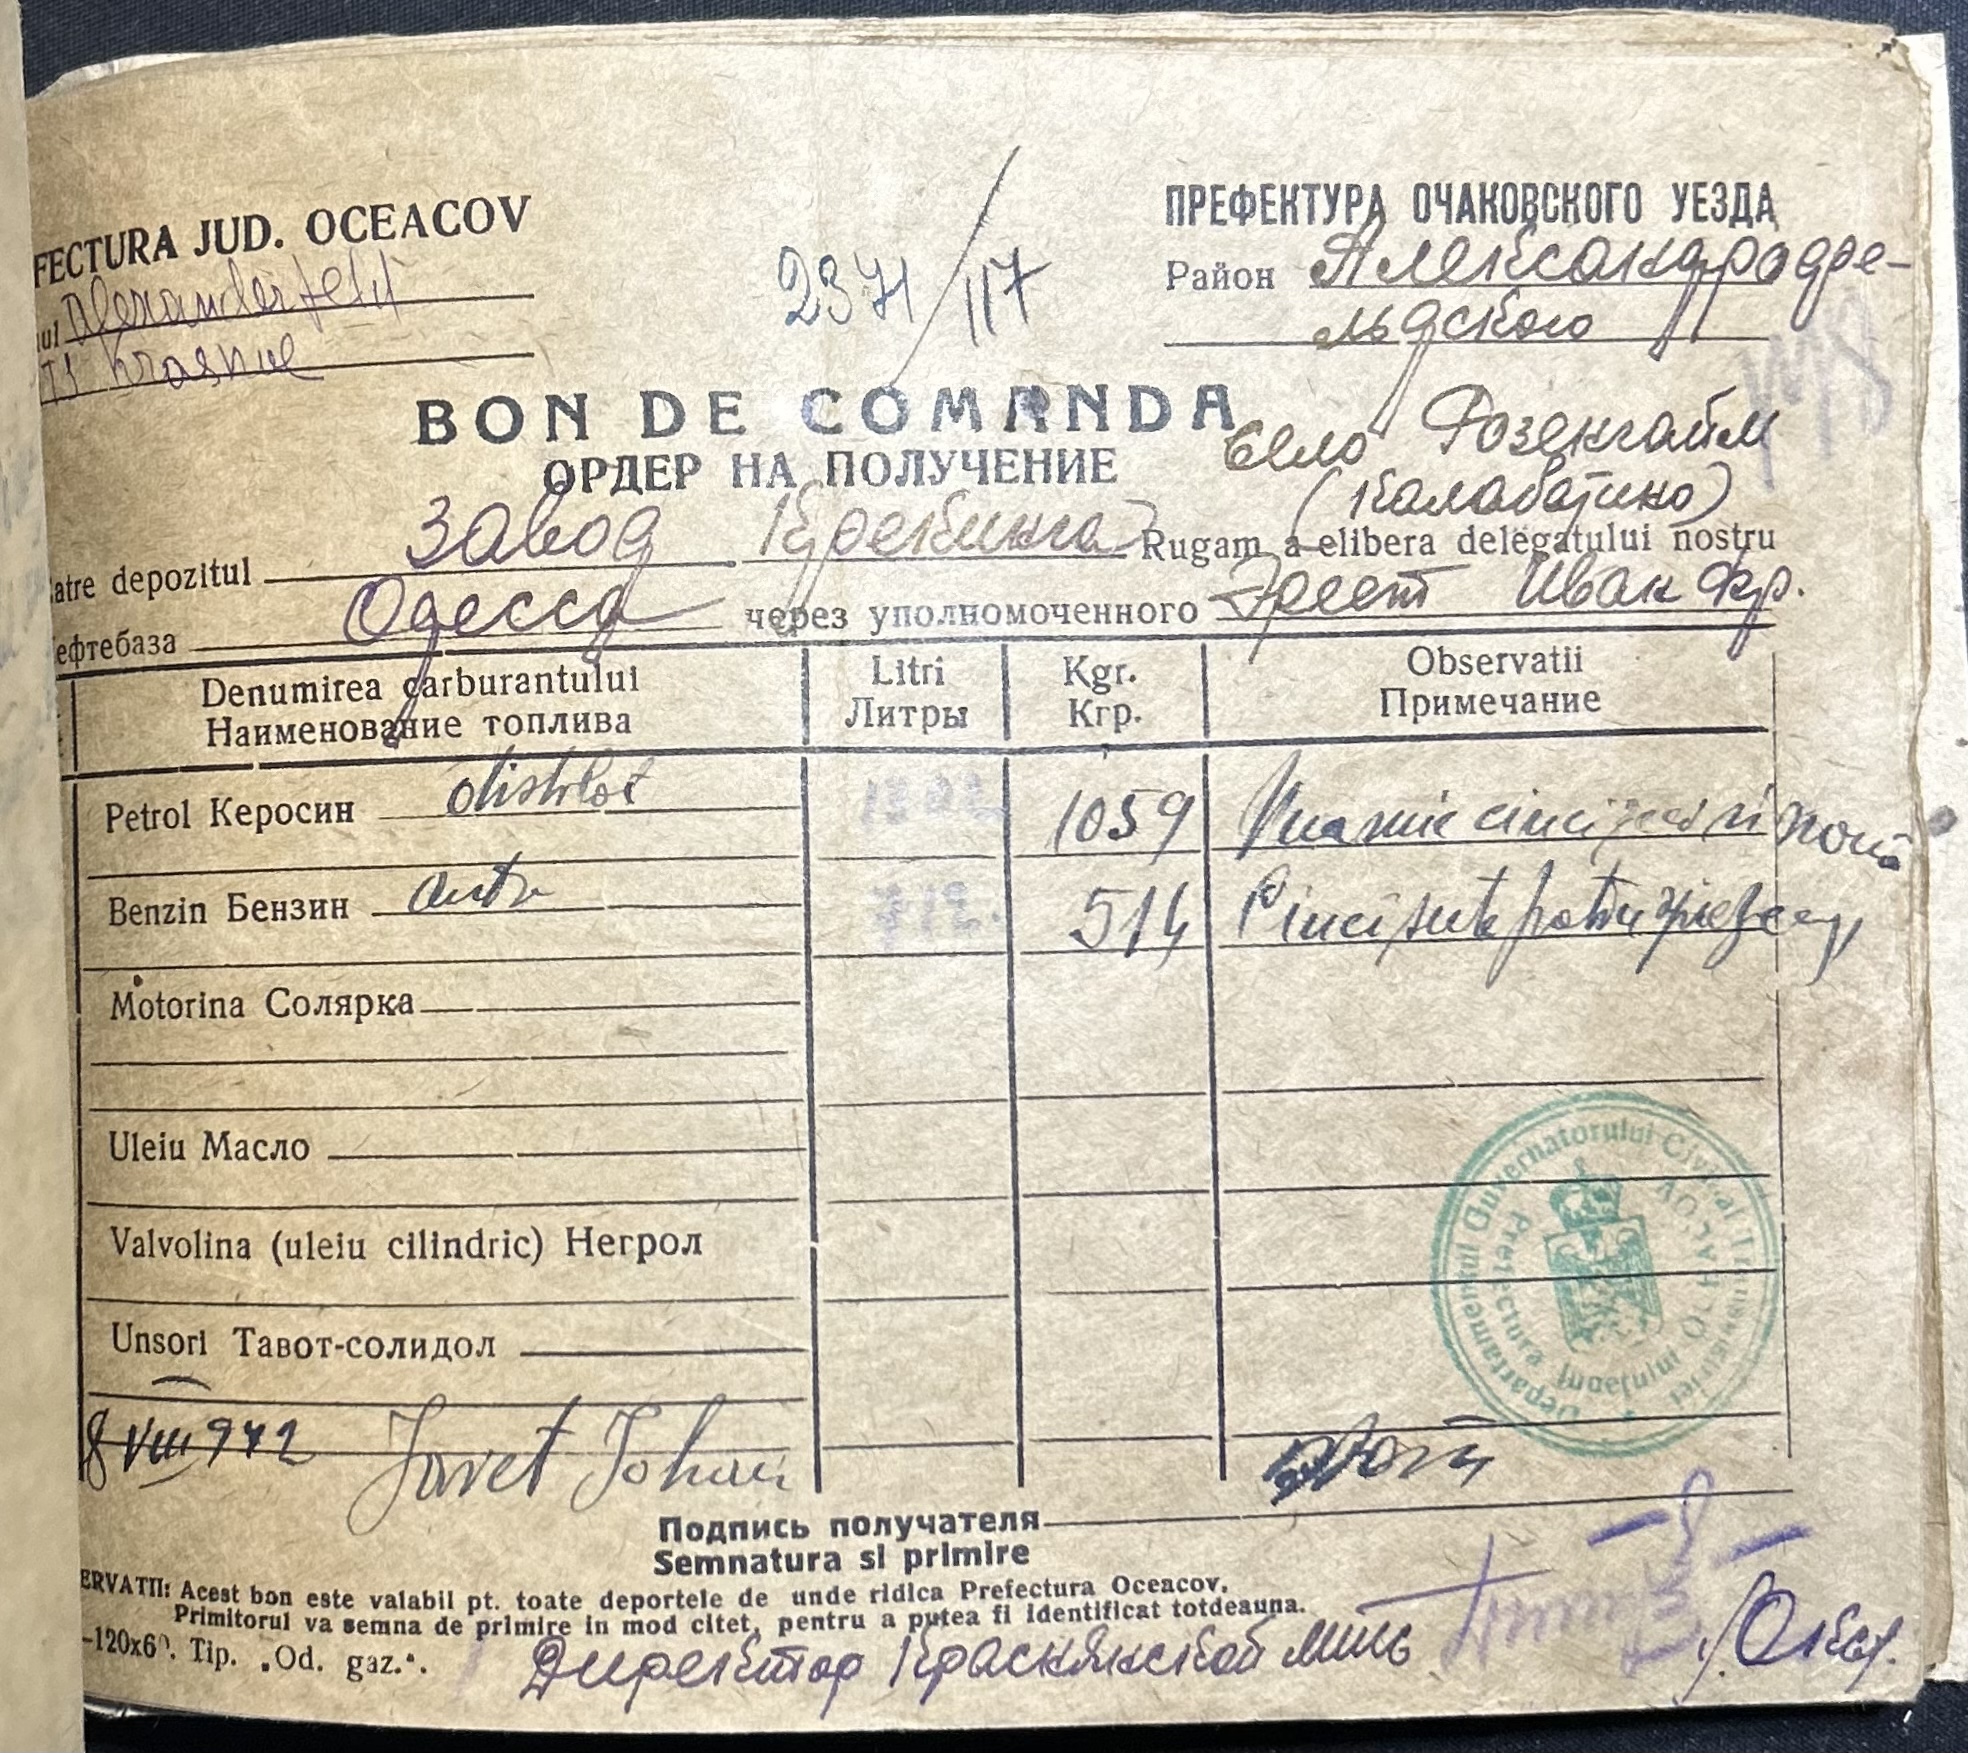 FECTURA JUD. OCEACOV
ul Alexanderfeld
2371/117
ПРЕФЕКТУРА ОЧАКОВСКОГО УЕЗДА
Район Александрофе-
льдского
BON DE COMANDA
ОРДЕР НА ПОЛУЧЕНИЕ
Село Розенгайм
atre depozitul Завод
Rugam a elibera delegatului nostru
ефтебаза Одесса через уполномоченного Иван Фр.
Denumirea carburantului Litri Kgr. Observatii
Наименование топлива Литры Кгр. Примечание
Petrol Керосин distilat 1059 Una mie cinci zeci si nouă
Benzin Бензин auto 514 Cinci sute
Motorina Солярка
Uleiu Масло
Valvolina (uleiu cilindric) Негрол
Unsori Тавот-солидол
Departamentul Guvernatorului Civil al Transnistriei
Prefectura Județului OCHACOV
8 VIII 942 Johan
Подпись получателя
Semnatura si primire
ERVATII: Acest bon este valabil pt. toate deportele de unde ridica Prefectura Oceacov.
Primitorul va semna de primire in mod citet, pentru a putea fi identificat totdeauna.
-120x60. Tip. „Od. gaz.“.
Директор Краснянской